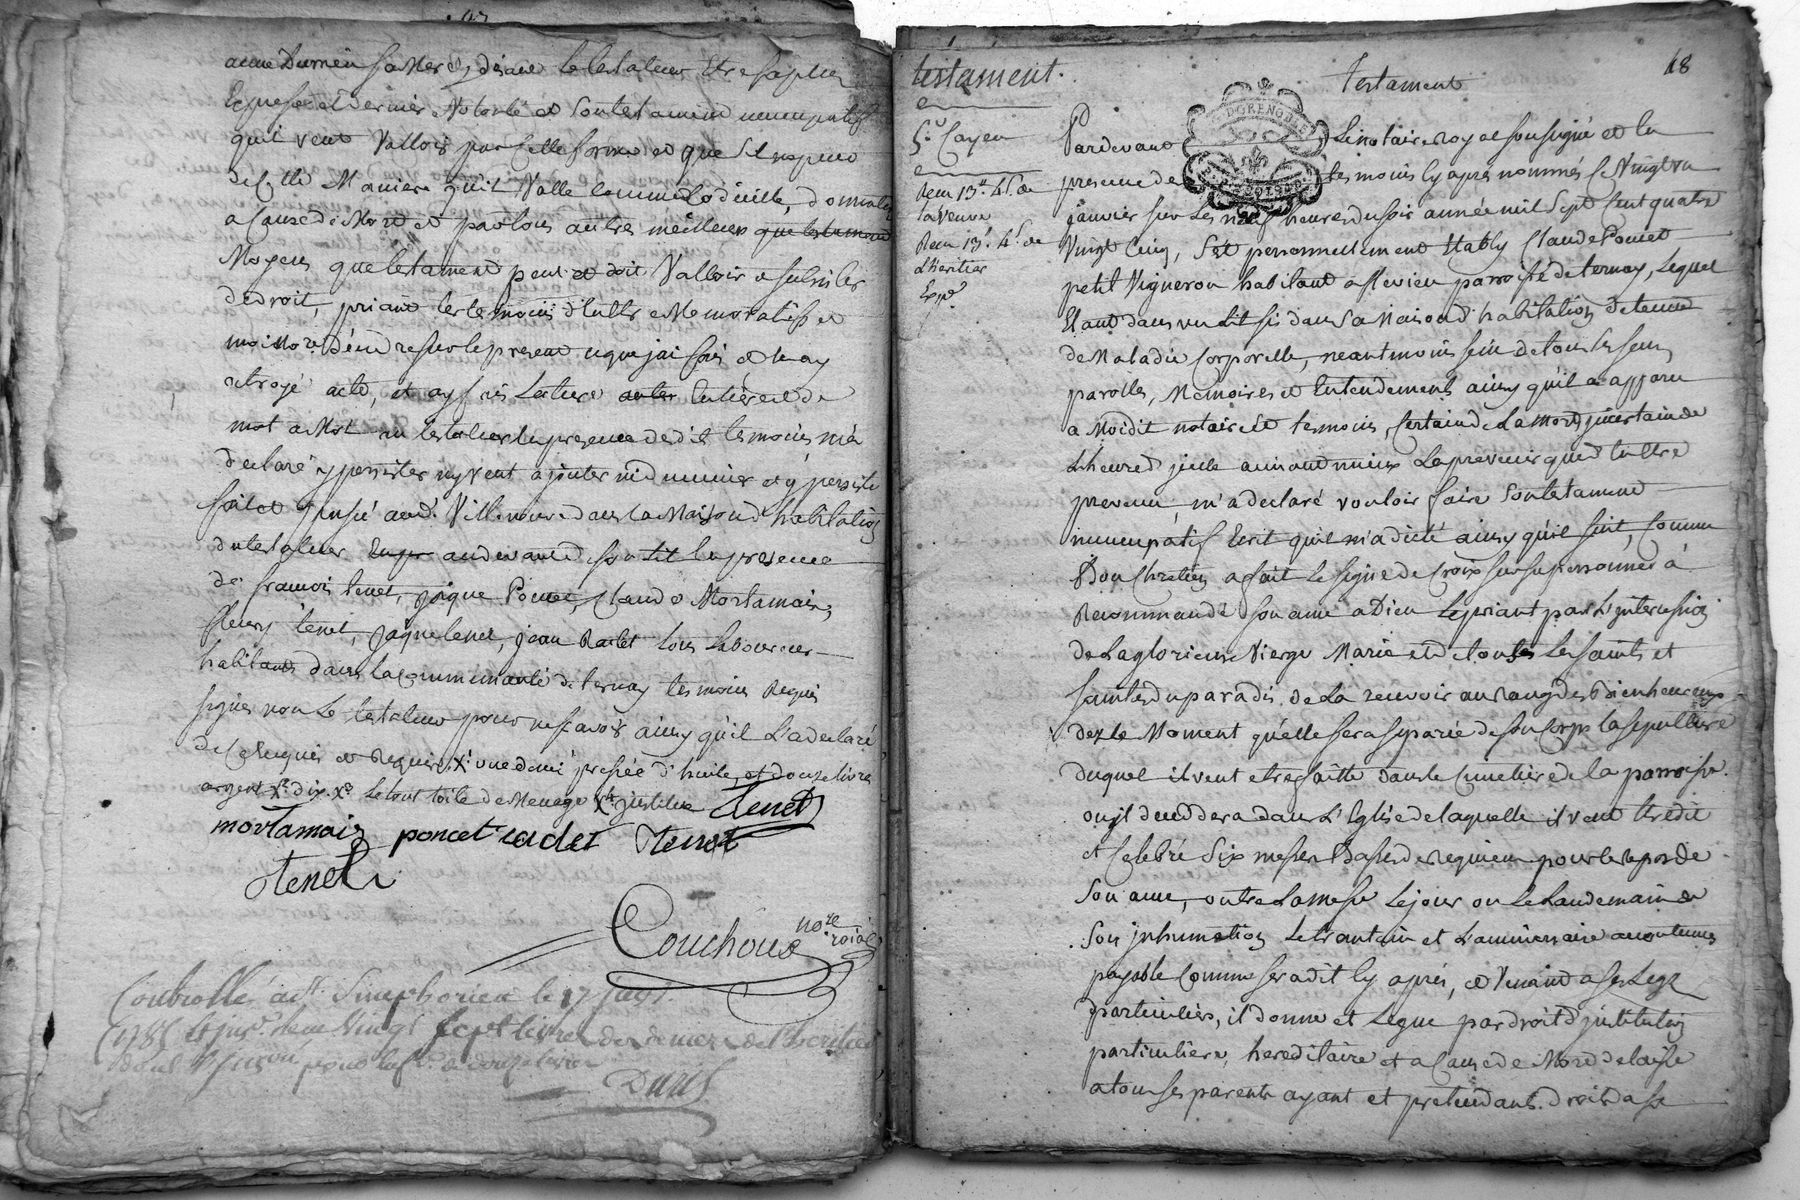 anne Dumein sa Mere, declare le testateur Etre sa plus
Expresse et derniere Volonté et son testament nuncupatif
qu'il veut Valloir par telle forme et que s'il ne peut
de cette Maniere qu'il Valle comme Codicille, donnation
a Cause de Mort et par tous autres meilleurs que testament
Moyens que testament peut et doit Valloir et subsister
de droit, priant les temoins d'Etre Memoratifs et
moi Not.re d'en dresser le present ce que j'ai fais et luy ay
octroyé acte, et ay fais Lecture entiere et de
mot a Mot au testateur En presence desdits temoins m'a
declaré y persister ny veut ajouter ni diminuer et y persiste
fait et passé aud. Villeneuve dans la Maison d'habitation
du testateur au devant de son lit En presence
de francois tenet, Jaque Poncet, Claude Mortamais,
fleury tenet, Jaque tenet, jean Raclet tous Laboureurs
habitants dans la communauté de ternay temoins Requis
signes non Le testateur pour ne savoir ainsy qu'il L'a declaré
de ce Enquis et Requis, X.e une demi pressée d'huile, et douze livres
argent X.e dix X.e Le tout toile de Menage X.e justitue Tenet
mortamais poncet cadet Tenet
Tenet
Couchoux no.re roial
Controllé a S.t Simphorien le 27 jan.r
1785 et ins.é Reçu Vingt sept livres
Duret
testament.
5.e Cayer
Recu 13.ll 4.s de
la veuve
Recu 13.ll 4.s de
L'heritier
Exp.é
18
Testament
DGRENOBLE
Pardevant Le notaire Royal soussigné et En
presence des temoins Cy apres nommés Ce Vingt un
janvier sur Les neuf heures du soir année mil Sept Cent quatre
Vingt Cinq, S'est personnellement Etably Claude Poncet
petit Vigneron habitant a flevieu parroisse de ternay, Lequel
Etant dans un Lit sis dans sa Maison d'habitation detenu
de Maladie Corporelle, neantmoins sein de tous ses sens,
parolles, Memoires et Entendement ainsy qu'il a apparu
a Moidit notaire et temoins, Certain de La mort, incertain de
L'heure d'jcelle aimant mieux La prevenir que d'En Etre
prevenu, m'a declaré vouloir faire Son testament
nuncupatif Ecrit qu'il m'a dicté ainsy qu'il suit, Comme
Bon Chretien a fait le signe de Croix sur sa personne et a
Recommandé son ame a Dieu Le priant par L'jntercession
de La glorieuse Vierge Marie et de toutes Les saints et
saintes du paradis de La recevoir au Rang des Bienheureux
dez le Moment qu'elle sera separée de son Corps la sepulture
duquel il veut etre faitte dans le Cimetiere de la parroisse
ou jl deceddera dans L'Eglise de laquelle il veut Etre dit
et Celebré Six messes Basses de requiem pour Le repos de
Son ame, outre La messe Le jour ou Le Landemain de
Son jnhumation Le trantain et L'anniversaire accoutumés
payable Comme sera dit Cy aprés, et Venant a ses Legs
particuliers, il donne et Legue par droit d'jnstitution
particuliere, hereditaire et a Cause de Mort delaisse
a tous ses parents ayant et pretendants droits a sa